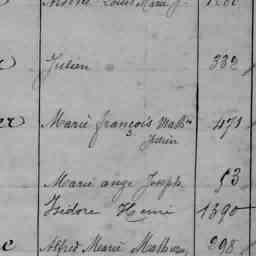 Louis Marie J.
Julien 332
er Marie françois Math^in 471
Julien
Marie ange Joseph 53
Isidore Henri 1390
Alfred Marie Mathurin 298